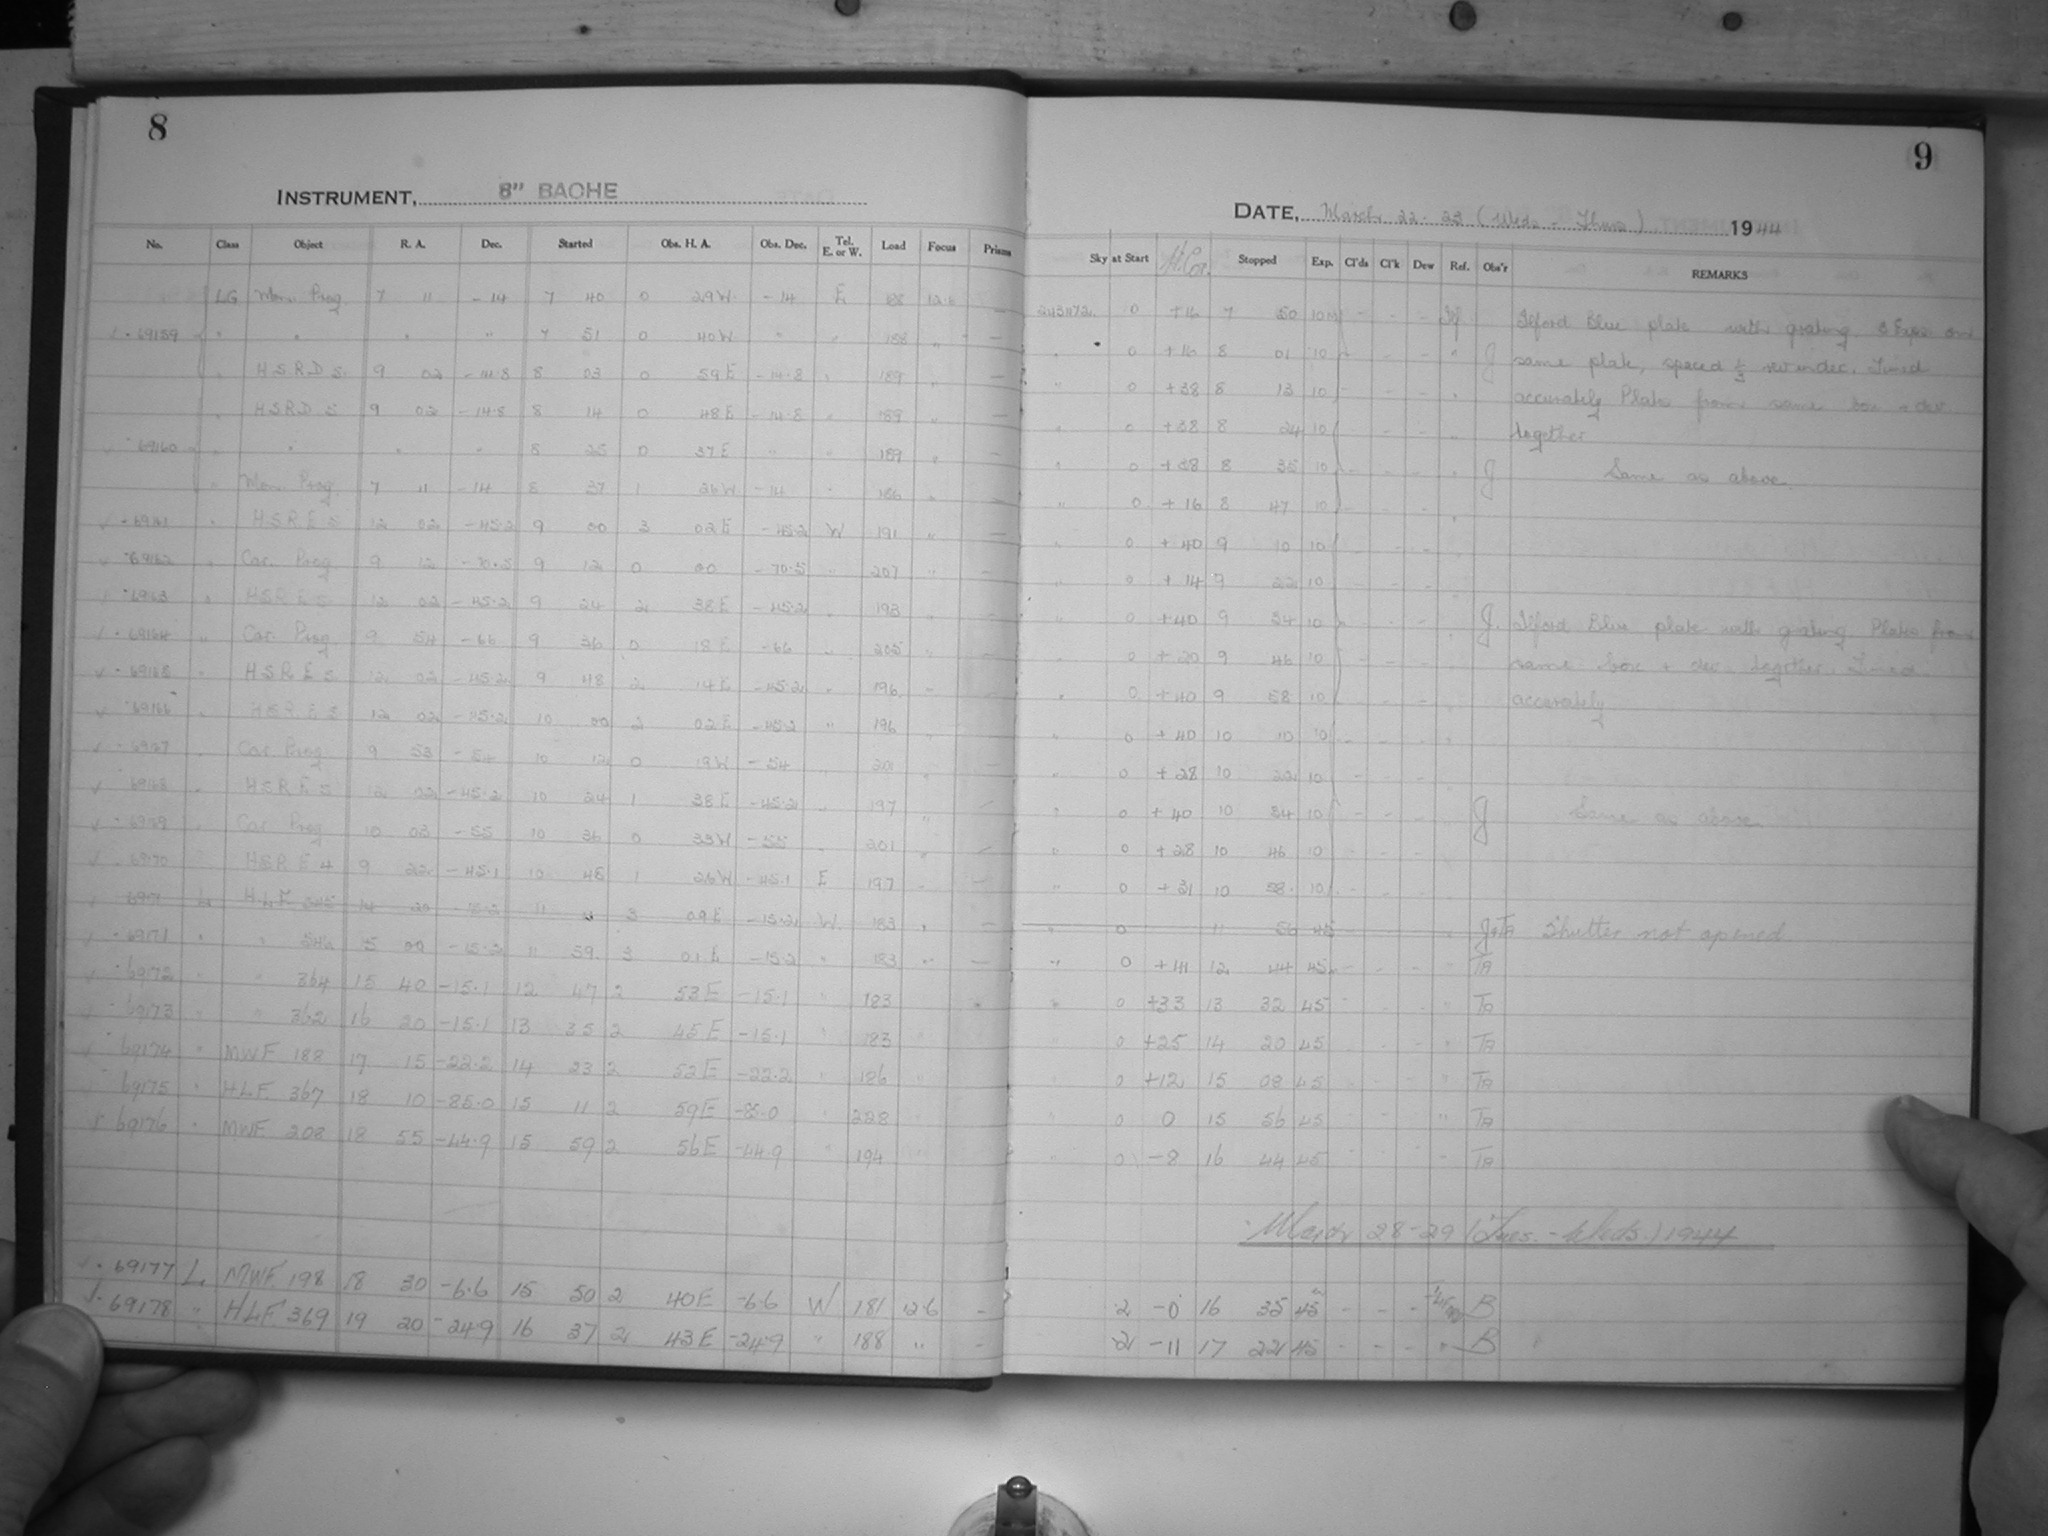 8
INSTRUMENT, 8" BACHE
No. Class Object R. A. Dec. Started Obs. H. A. Obs. Dec. Tel. E. or W. Load Focus Prisms
LG Mon. Prog. 7 11 -14 7 40 0 29W -14 E 12.6 —
69159 " " " " 7 51 0 40W " " 188 " —
" HSRDS 9 02 -14.8 8 03 0 59E -14.8 " 189 " —
" HSRDS 9 02 -14.8 8 14 0 48E -14.8 " 189 " —
69160 " " " " 8 25 0 37E " " 189 " —
" Mon. Prog. 7 11 -14 8 37 1 26W -14 " 186 " —
69161 " HSRES 12 02 -45.2 9 00 3 02E -45.2 W 191 " —
69162 " Car. Prog. 9 12 -70.5 9 12 0 00 -70.5 " 207 " —
69163 " HSRES 12 02 -45.2 9 24 2 38E -45.2 " 193 " —
69164 " Car. Prog. 9 54 -66 9 36 0 18E -66 " 205 " —
69165 " HSRES 12 02 -45.2 9 48 2 14E -45.2 " 196 " —
69166 " HSRES 12 02 -45.2 10 00 2 02E -45.2 " 196 " —
69167 " Car. Prog. 9 53 -54 10 12 0 19W -54 " " —
69168 " HSRES 12 02 -45.2 10 24 1 38E -45.2 " 197 " —
69169 " Car. Prog. 10 03 -55 10 36 0 33W -55 " 201 " —
69170 HSRE4 9 22 -45.1 10 48 1 26W -45.1 E 197 " —
L HLF 14 20 -15.2 11 3 09E -15.2 W 183 " —
69171 " " 15 00 -15.2 11 59 3 01E -15.2 " 183 " —
69172 " " 364 15 40 -15.1 12 47 2 53E -15.1 " 183
69173 " " 362 16 20 -15.1 13 35 2 45E -15.1 " 183
69174 " MWF 188 17 15 -22.2 14 23 2 52E -22.2 " 186
69175 " HLF 367 18 10 -85.0 15 11 2 59E -85.0 " 228
69176 " MWF 208 18 55 -44.9 15 59 2 56E -44.9 " 194
69177 L MWF 198 18 30 -6.6 15 50 2 40E -6.6 W 181 12.6 -
69178 " HLF 369 19 20 -24.9 16 37 2 43E -24.9 " 188 " -
9
DATE, March 22-23 (Weds - Thurs) 1944
Sky at Start H.Cor. Stopped Exp. Cl'ds Cl'k Dew Ref. Obs'r REMARKS
2431172 0 +16 7 50 10 - - - Ilford Blue plate with grating. 3 Expos on
" 0 +16 8 01 10 - - - " J same plate, spaced in dec. Timed
" 0 +38 8 13 10 - - - " accurately Plates from same box + dev.
" 0 +38 8 24 10 - - - " together
" 0 +38 8 35 10 - - - " J Same as above.
" 0 +16 8 47 10 - - - "
" 0 +40 9 10 10 - - - "
" 0 +14 9 22 10 - - - "
" 0 +40 9 34 10 - - - " J. Ilford Blue plate with grating Plates from
" 0 +20 9 46 10 - - - " same box + dev. together. Timed
" 0 +40 9 58 10 - - - " accurately
" 0 +40 10 10 10 - - - "
" 0 +28 10 22 10 - - - "
" 0 +40 10 34 10 - - - " J Same as above
" 0 +28 10 46 10 - - - "
" 0 +31 10 58 10 - - - "
" 0 11 56 45 - - - " J+TA Shutter not opened
" 0 +41 12 44 45 - - - " TA
" 0 +33 13 32 45 - - - " TA
0 +25 14 20 45 - - - " TA
" 0 +12 15 08 45 - - - " TA
" 0 0 15 56 45 - - - " TA
" 0 -8 16 44 45 - - - " TA
March 28-29 (Tues. - Weds.) 1944
2 -0 16 35 45 - - - B
2 -11 17 22 45 - - - " B